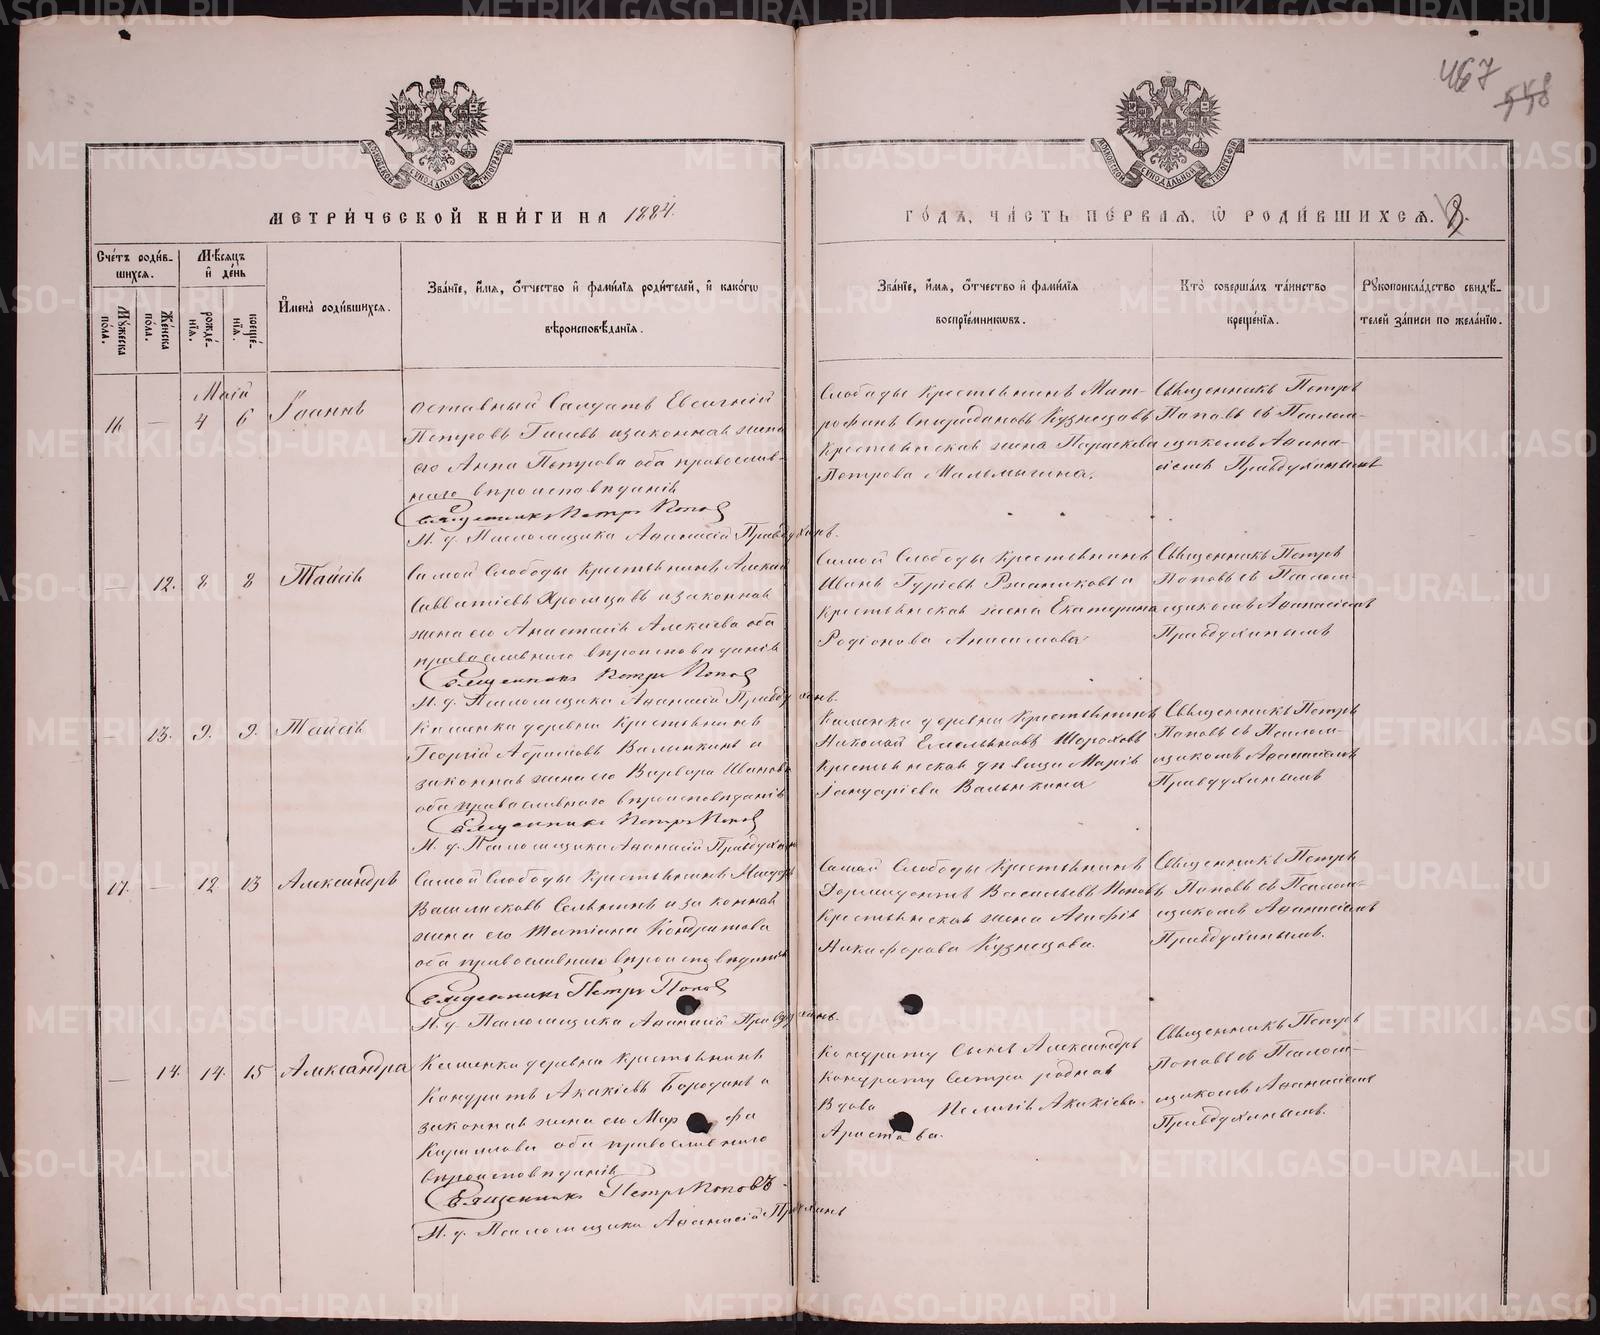 467
558
МОСКОВСКОЙ СѴНОДАЛЬНОЙ ТИПОГРАФІИ
МОСКОВСКОЙ СѴНОДАЛЬНОЙ ТИПОГРАФІИ
МЕТРИ́ЧЕСКОЙ КНИ́ГИ НА 1884.
ГО́ДЪ, ЧА́СТЬ ПЕ́РВАЯ, Ѡ РОДИ́ВШИХСЯ. 8.
Сче́тъ роди́вшихся.
Му́жеска по́ла.
Же́нска по́ла.
Мѣ́сяцъ и де́нь
рожде́нїя.
креще́нїя.
И҆мена̀ роди́вшихся.
Зва́нїе, и҆́мя, ѻ҆́тчество и҆ фами́лїя роди́телей, и҆ како́гѡ
вѣроисповѣ́данїя.
Зва́нїе, и҆́мя, ѻ҆́тчество и҆ фами́лїя
воспрїе́мникѡвъ.
Кто̀ соверша́лъ та́инство
креще́нїя.
Рꙋкоприкла́дство свидѣ́-
телей за́писи по жела́нїю.
Маій
— 4 6 Іоаннъ
Оставный Солдатъ Евсигній
Петровъ изаконная жена
его Анна Петрова оба православ-
наго вѣроисповѣданія
Священникъ Петръ Попов
И. д. Псаломщика Аѳанасій Правдухинъ.
Слободы крестьянинъ Мит-
рофанъ Спиридоновъ Кузнецовъ
крестьянская жена
Петрова Мальмыгина.
Священникъ Петръ
Поповъ съ Псалом-
щикомъ Аѳана-
сіемъ Правдухинымъ
— 12. 8 8 Таисія
Самой Слободы крестьянинъ Алексѣй
Савватіевъ Хромцовъ изаконная
жена его Анастасія Алексѣева оба
православнаго вѣроисповѣданія
Священникъ Петръ Попов
И. д. Псаломщика Аѳанасій Правдухинъ.
Самой Слободы крестьянинъ
Иванъ Гуріевъ и
крестьянская жена Екатерина
Родіонова Анисимова
Священникъ Петръ
Поповъ съ Псалом-
щикомъ Аѳанасіемъ
Правдухинымъ
— 13. 9. 9. Таисія
Каменка деревни крестьянинъ
Георгій Абрамовъ Валькинъ и
законная жена его Варвара Иванова
оба православнаго вѣроисповѣданія
Священникъ Петръ Попов
И. д. Псаломщика Аѳанасій Правдухинъ
Каменка деревни крестьянинъ
Николай Емельяновъ Шороховъ
крестьянская дѣвица Марія
Іануаріева Валькина
Священникъ Петръ
Поповъ съ Псалом-
щикомъ Аѳанасіемъ
Правдухинымъ
17. — 12 13 Александръ
Самой Слободы крестьянинъ
изаконная
жена его Татіана Кондратова
оба православнаго вѣроисповѣданія
Священникъ Петръ Попов
И. д. Псаломщика Аѳанасій Правдухинъ.
Самой Слободы крестьянинъ
Дормидонтъ Васильевъ Поповъ
крестьянская жена Агафія
Никифорова Кузнецова.
Священникъ Петръ
Поповъ съ Псалом-
щикомъ Аѳанасіемъ
Правдухинымъ.
— 14. 14. 15 Александра
Каменка деревни крестьянинъ
Кондратъ Акакіевъ Бороданъ и
законная жена его Марфа
Кирилова оба православнаго
вѣроисповѣданія
Священникъ Петръ Поповъ
И. д. Псаломщика Аѳанасій Правдухинъ
Кондрату Сынъ Александръ
Кондрату Сестра родная
Вдова Пелагія Акакіева
Аристова.
Священникъ Петръ
Поповъ съ Псалом-
щикомъ Аѳанасіемъ
Правдухинымъ.
METRIKI.GASO-URAL.RU